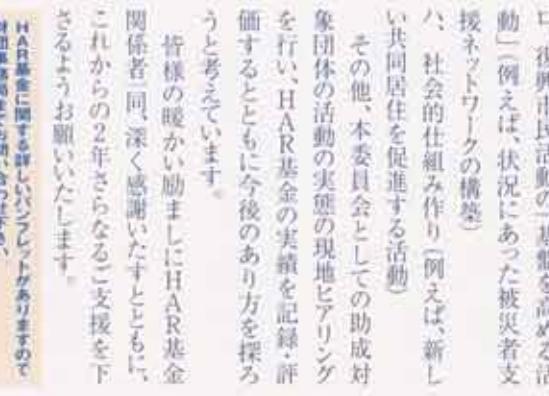 ロ、復興市民活動の「基盤を高める活
動」（例えば、状況にあった被災者支
援ネットワークの構築）
ハ、社会的仕組み作り（例えば、新し
い共同居住を促進する活動）
その他、本委員会としての助成対
象団体の活動の実態の現地ヒアリング
を行い、HAR基金の実績を記録・評
価するとともに今後のあり方を探ろ
うと考えています。
皆様の暖かい励ましにHAR基金
関係者一同、深く感謝いたすとともに、
これからの2年さらなるご支援を下
さるようお願いいたします。
HAR基金に関する詳しいパンフレットがありますので
財団事務局までお問い合わせ下さい。